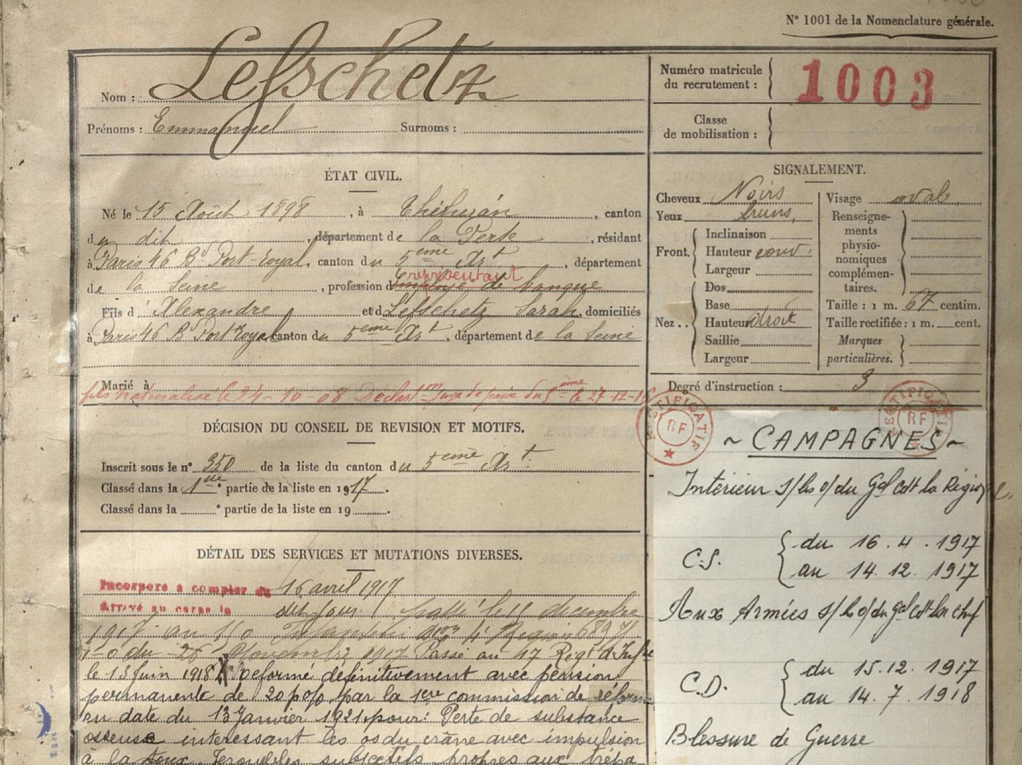 N° 1001 de la Nomenclature générale.
Nom : Lefschetz
Prénoms : Emmanuel Surnoms :
Numéro matricule du recrutement : 1003
Classe de mobilisation :
ÉTAT CIVIL.
Né le 15 Août 1898, à Théhéran, canton
du dit, département de la Perse, résidant
à Paris 46 Bd Port-royal, canton du 5ème Art, département
representant
de la Seine, profession d employé de banque
Fils d'Alexandre et d Lefschetz Sarah, domiciliés
à Paris 46 Bd Port Royal canton du 5ème Art, département de la Seine
Marié à
naturalisé le 24-10-08 Déclar du 5ème le 27-12-
SIGNALEMENT.
Cheveux Noirs
Yeux bruns
Front, Inclinaison
Hauteur couv.
Largeur
Nez.. Dos
Base
Hauteur droit
Saillie
Largeur
Visage ovale
Renseignements physionomiques complémentaires.
Taille : 1 m. 67 centim.
Taille rectifiée : 1 m. cent.
Marques particulières.
Degré d'instruction : 3
DÉCISION DU CONSEIL DE REVISION ET MOTIFS.
Inscrit sous le n° 350 de la liste du canton du 5ème Art
Classé dans la 1ère partie de la liste en 1917.
Classé dans la e partie de la liste en 19 .
DÉTAIL DES SERVICES ET MUTATIONS DIVERSES.
Incorporé à compter du 16 avril 1917
Arrivé au corps le dit jour. Passé le 15 décembre
1917 au
du 26 Novembre 1917 Passé au 47 Regt d'Infie
le 13 juin 1918 X Réformé définitivement avec pension
permanente de 20 p% par la 1ere commission de réforme
en date du 13 Janvier 1921 pour: Perte de substance
osseuse interessant les os du crâne avec impulsion
à la toux Troubles subjectifs propres aux trépa
CERTIFICATIF
RF
CERTIFICATIF
RF
~ CAMPAGNES ~
Intérieur s/les o/du Gal Cdt la Région
C.S. { du 16.4.1917
au 14.12.1917
Aux Armées s/les o/du Gal Cdt en chef
C.D. { du 15.12.1917
au 14.7.1918
Blessure de Guerre